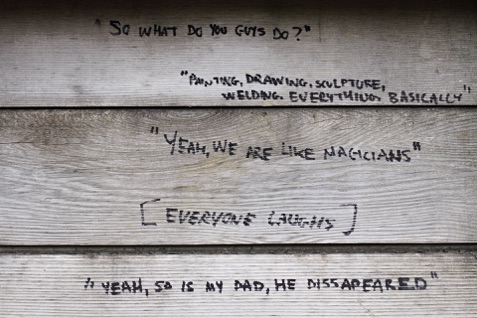 "SO WHAT DO YOU GUYS DO?"
"PAINTING, DRAWING, SCULPTURE,
WELDING. EVERYTHING BASICALLY"
"YEAH, WE ARE LIKE MAGICIANS"
[EVERYONE LAUGHS]
"YEAH, SO IS MY DAD, HE DISSAPEARED"